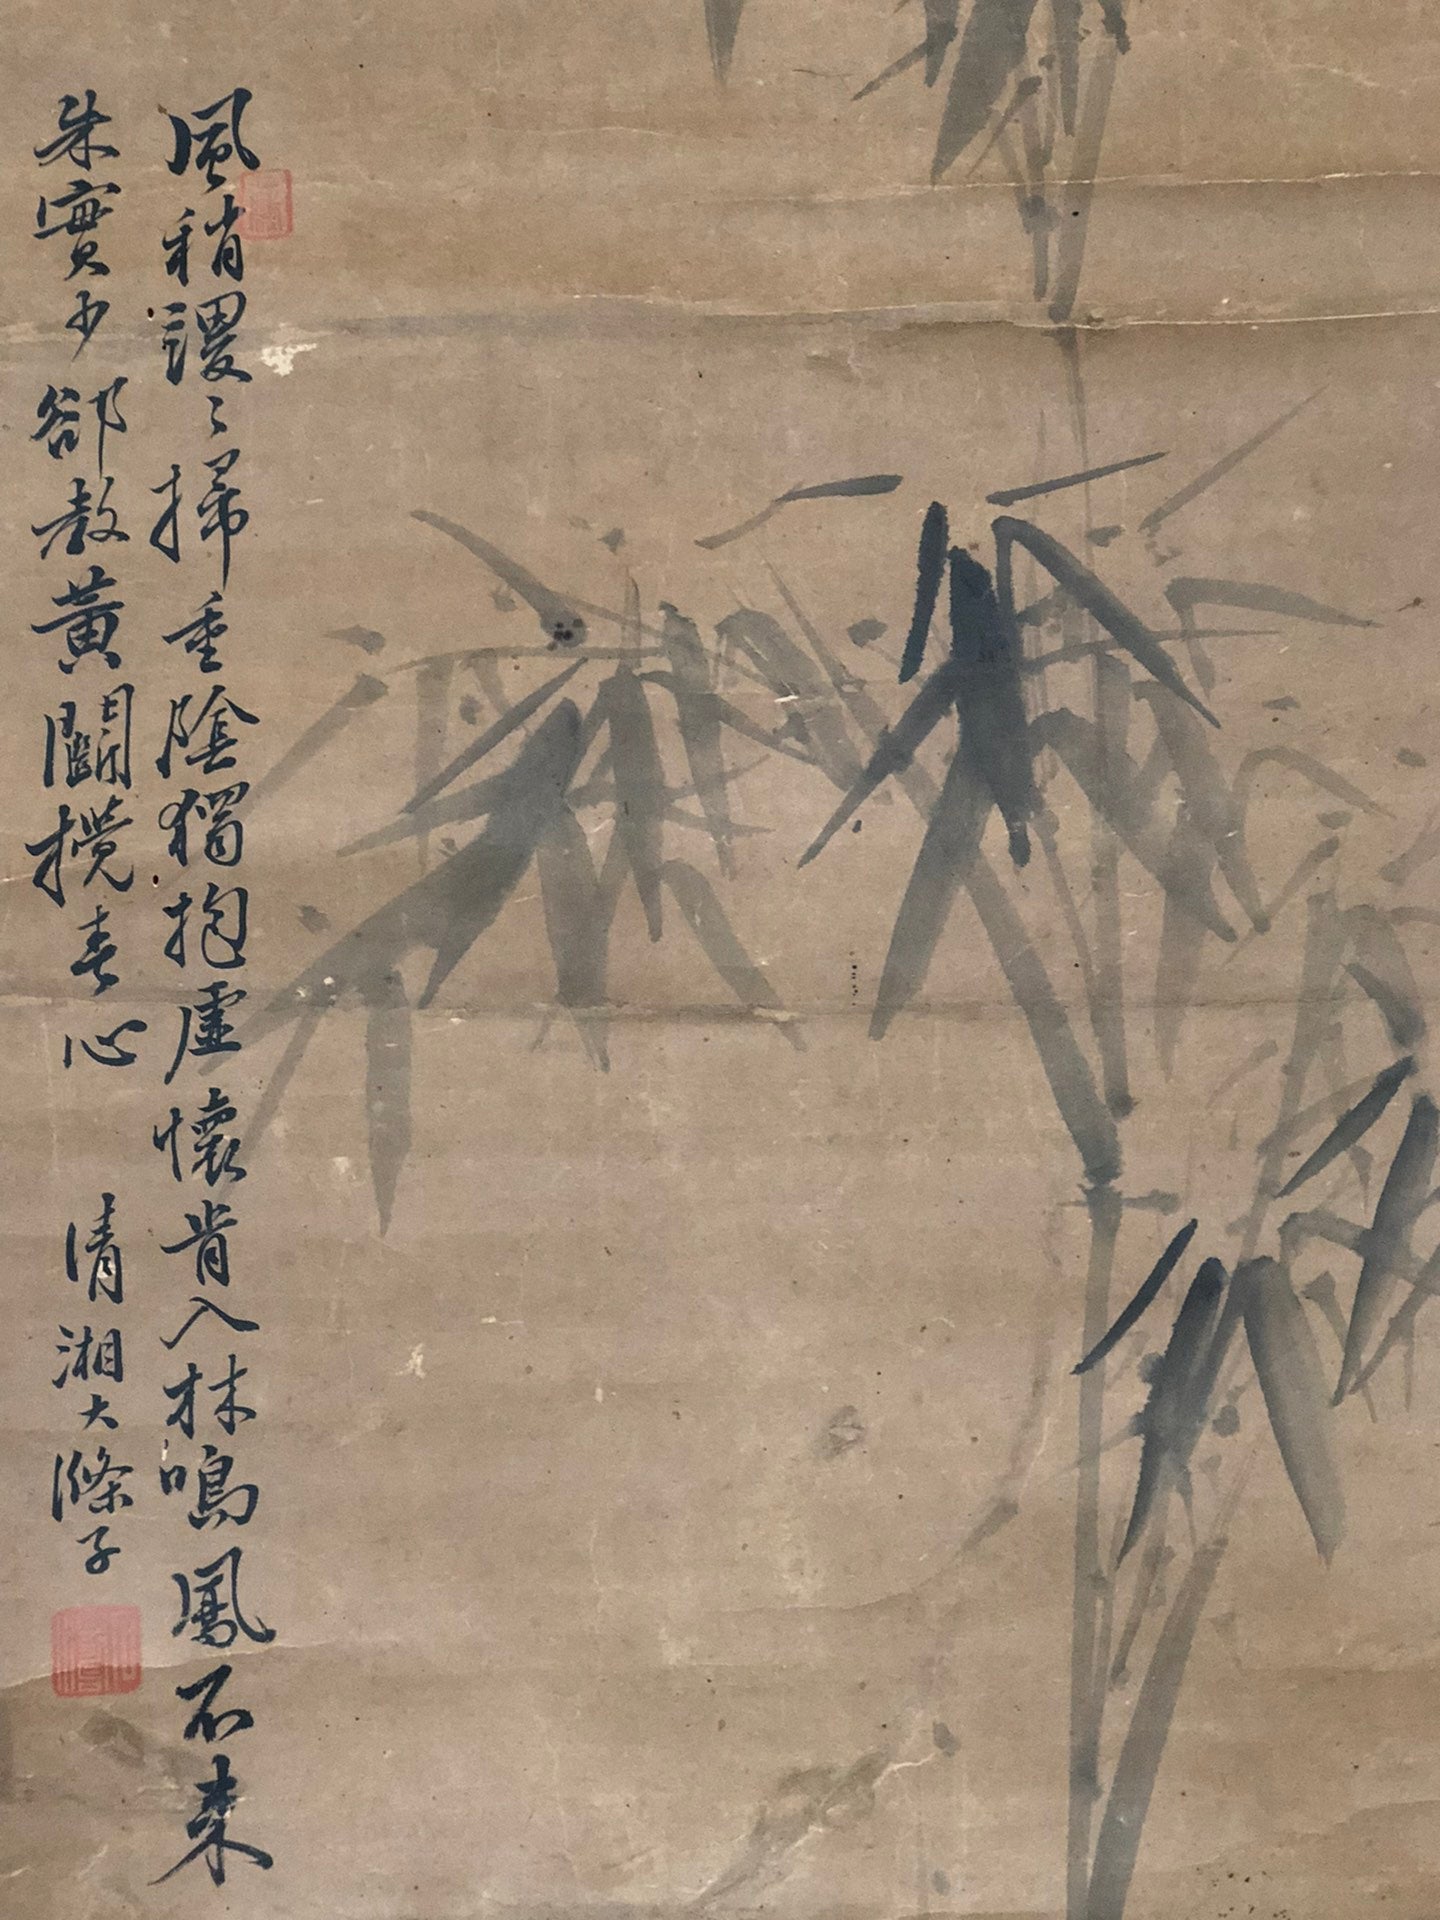 風稍謖〻掃重陰獨抱虛懷肯入林鳴鳳不來
朱實少郤教黃鸝攪春心
清湘大滌子